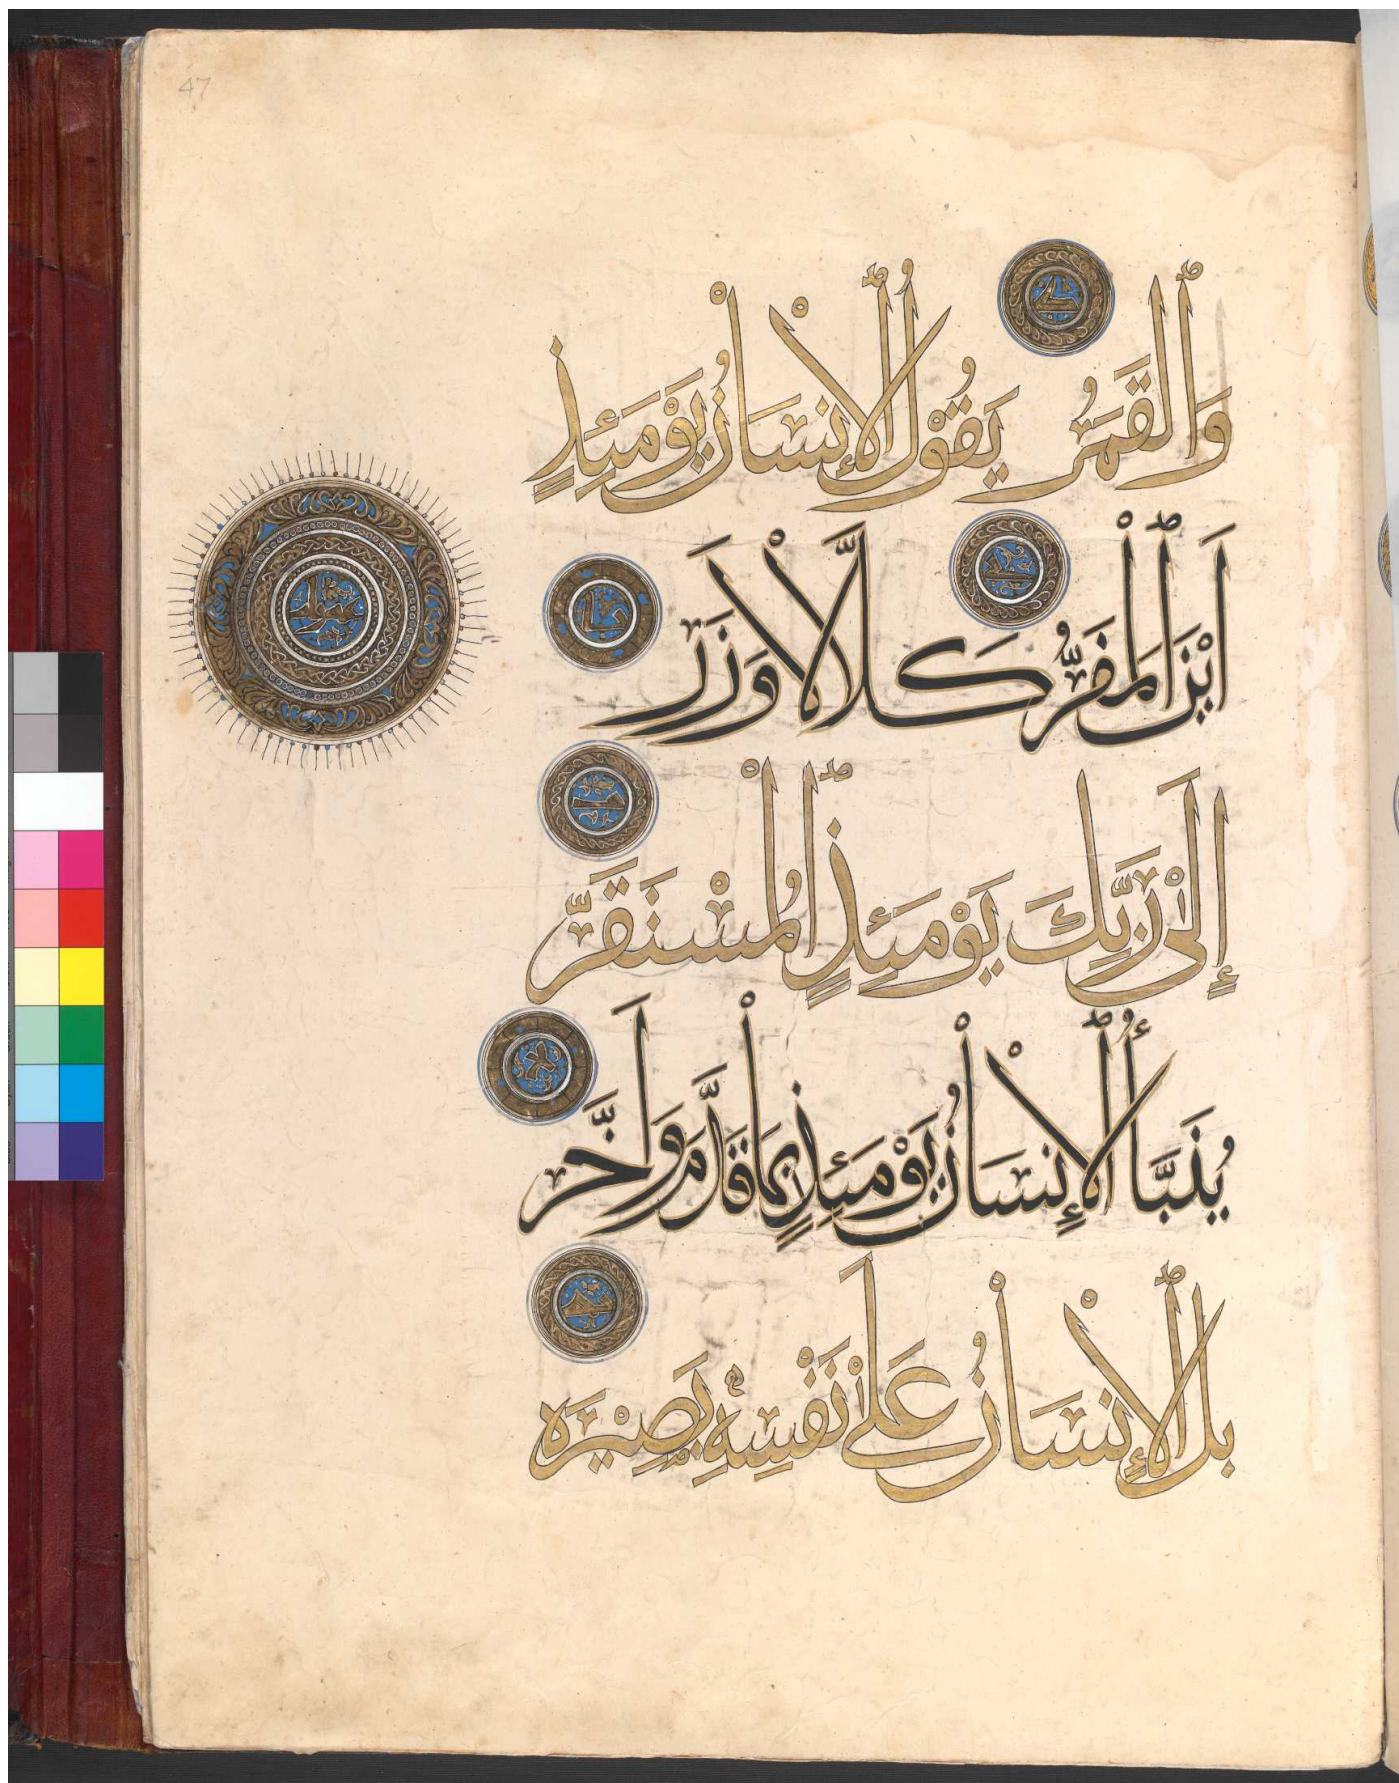 47
وَٱلْقَمَرُ يَقُوْلُ ٱلْإِنْسَانُ يَوْمَئِذٍ
اَيْنَ ٱلْمَفَرُّ كَلَّا لَا وَزَرَ
إِلَىٰ رَبِّكَ يَوْمَئِذٍ ٱلْمُسْتَقَرُّ
يُنَبَّأُ ٱلْإِنْسَانُ يَوْمَئِذٍ بِمَا قَدَّمَ وَاَخَّرَ
بَلِ ٱلْإِنْسَانُ عَلَىٰ نَفْسِهِ بَصِيْرَه